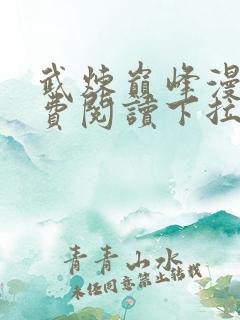 武炼巅峰漫
費閱讀下拉
青青山水
未经同意禁止转载